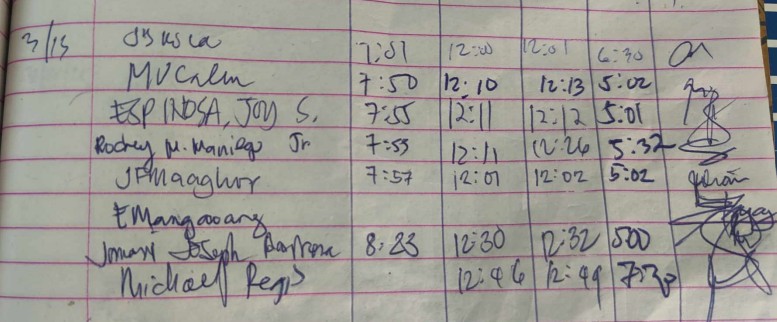 3/15 7:51 12:00 12:01 6:30
MVCalm 7:50 12:10 12:13 5:02
ESPINOSA, JOY S. 7:55 12:11 12:12 5:01
Rodney M. Maniego Jr 7:55 12:11 12:26 5:32
JFMaaghor 7:57 12:01 12:02 5:02
EMangaoang
Joseph 8:23 12:30 12:32 500
Michael Regis 12:46 12:49 7:30